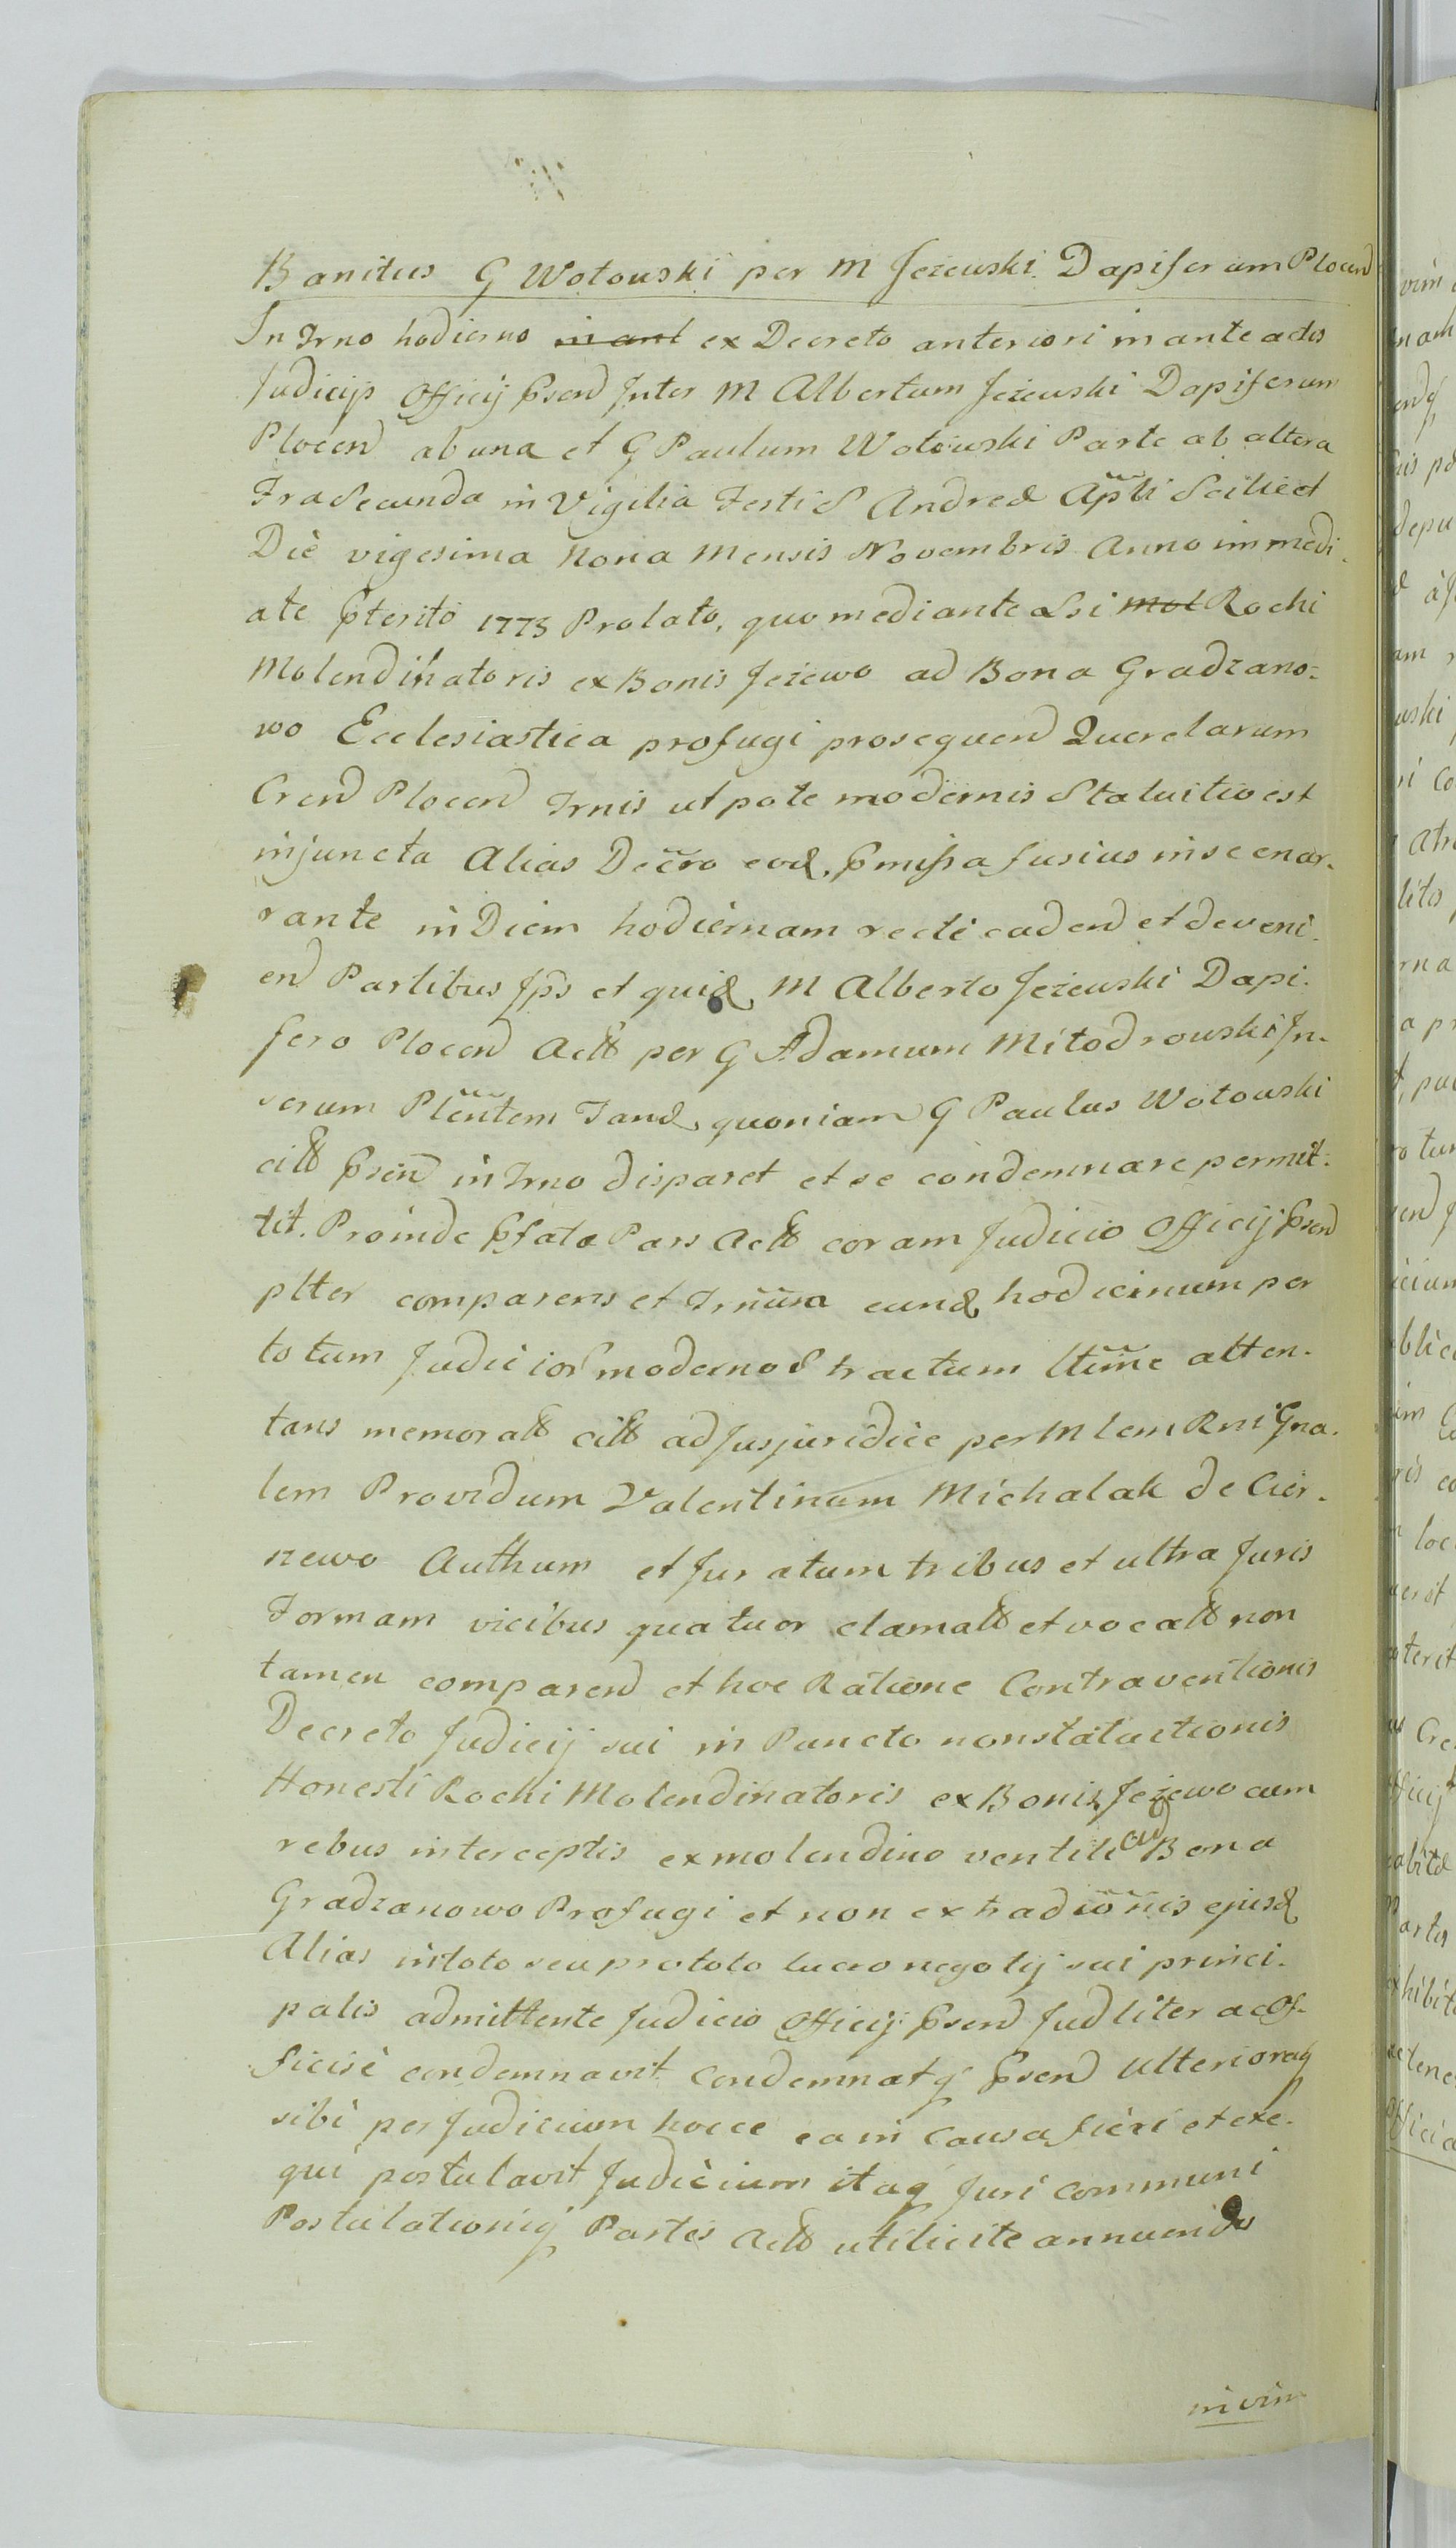 Banitus G Wotowski per M Jeżewski Dapiferum Plocen
In Trno hodierno in ant ex Decreto anteriori in ante actis
Judicijs Officij Psen Inter M Albertum Jeżewski Dapiferum
Plocen ab una et G Paulum Wotowski Parte ab altera
Fra Secunda in Vigilia Festi S Andreæ Apli Scilicet
Die vigesima Nona Mensis Novembris Anno immedi-
ate Pterito 1773 Prolato, quo mediante Lsi Mol Rochi
Molendinatoris ex Bonis Jeżewo ad Bona Gradzano-
wo Ecclesiastica profugi prosequen Querelarum
Cren Plocen Trnis utpote modernis Statuitio est
injuncta Alias Decro eod. Pmissa fusius in se enar-
rante in Diem hodiernam recte caden et deveni-
en Partibus Ips et quid M Alberto Jeżewski Dapi-
fero Plocen Act per G Adamum Mitodrowski In-
serum Plentem Tand quoniam G Paulus Wotowski
citt Psen in Trno disparet et se condemnare permit-
tit. Proinde Pfata Pars Act coram Judicio Officij Psen
plter comparens et Trnum eund hodiernum per
totum Judicior modernor tractum ltime atten-
tans memorat citt ad Jusjuridice per Mlem Rni Gna-
lem Providum Valentinum Michalak de Cier-
niewo Authum et Juratum tribus et ultra Juris
Formam vicibus quatuor clamatt et vocatt non
tamen comparen et hoc Ratione Contraventionis
Decreto Judicij sui in Puncto nonstatuitionis
Honesti Rochi Molendinatoris ex Bonis Jeżewo cum
rebus interceptis ex molendino ventili ad Bona
Gradzanowo Profugi et non extradionis ejusd
Alias in toto seu pro toto lucro negotij sui princi-
palis admittente Judicio Officij Psen Judliter ac Of-
ficise condemnavit Condemnatq Psen Ulterioraq
sibi per Judicium hocce ea in Causa fieri et exe-
qui postulavit Judicium itaq Juri communi
Postulationiq Partis Act utilicite annuendo
in vim